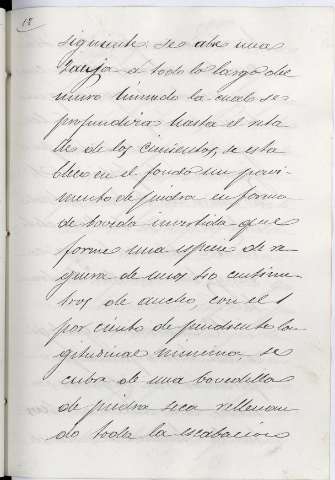 siguiente: se abre una
Zanja a todo lo largo del
muro húmedo la cual se
profundiza hasta el
lle de los cimientos, se esta
blece en el fondo un pavi-
mento de piedra en forma
de bóveda invertida que
forme una especie de re
guera de unos 40 centíme-
tros de ancho, con el 1
por ciento de pendiente lon
gitudinal mínima, se
cubre de una bovedilla
de piedra seca rellenan
do toda la escabación